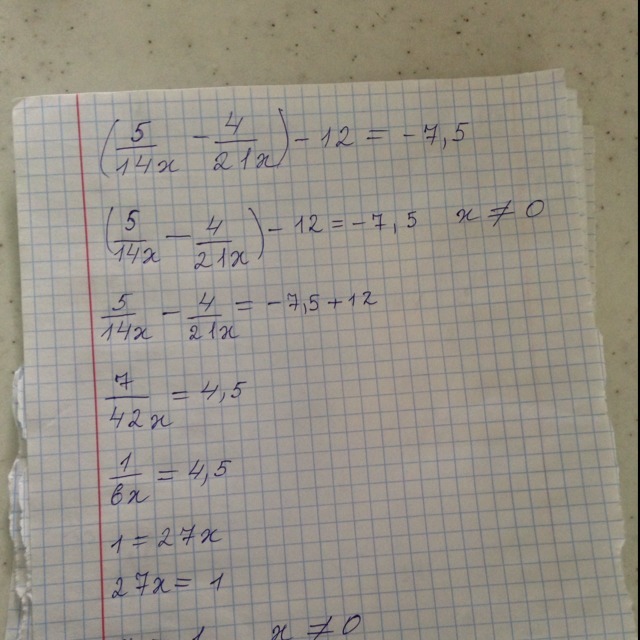 (5/14x - 4/21x) - 12 = -7,5
(5/14x - 4/21x) - 12 = -7,5 x ≠ 0
5/14x - 4/21x = -7,5 + 12
7/42x = 4,5
1/6x = 4,5
1 = 27x
27x = 1
1 x ≠ 0